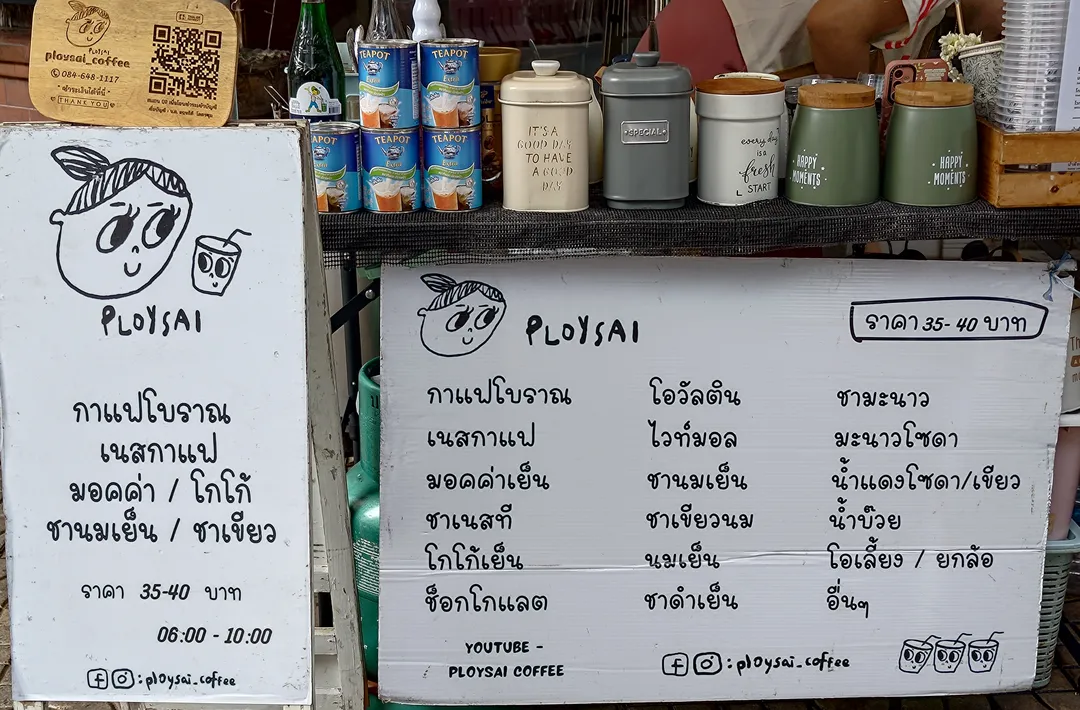 PLOYSAI
ploysai_coffee
084-648-1117
ชำระเงินได้ที่นี่
THANK YOU
TEAPOT
Extra
TEAPOT
Extra
TEAPOT
Extra
TEAPOT
Extra
TEAPOT
Extra
IT'S A
GOOD DAY
TO HAVE
A GOOD
DAY
SPECIAL
every day
is a
fresh
START
HAPPY
MOMENTS
HAPPY
MOMENTS
PLOYSAI
กาแฟโบราณ
เนสกาแฟ
มอคค่า / โกโก้
ชานมเย็น / ชาเขียว
ราคา 35-40 บาท
06:00 - 10:00
: ploysai_coffee
PLOYSAI
ราคา 35-40 บาท
กาแฟโบราณ
เนสกาแฟ
มอคค่าเย็น
ชาเนสที
โกโก้เย็น
ช็อกโกแลต
โอวัลติน
ไวท์มอล
ชานมเย็น
ชาเขียวนม
นมเย็น
ชาดำเย็น
ชามะนาว
มะนาวโซดา
น้ำแดงโซดา/เขียว
น้ำบ๊วย
โอเลี้ยง / ยกล้อ
อื่นๆ
YOUTUBE -
PLOYSAI COFFEE
: ploysai_coffee